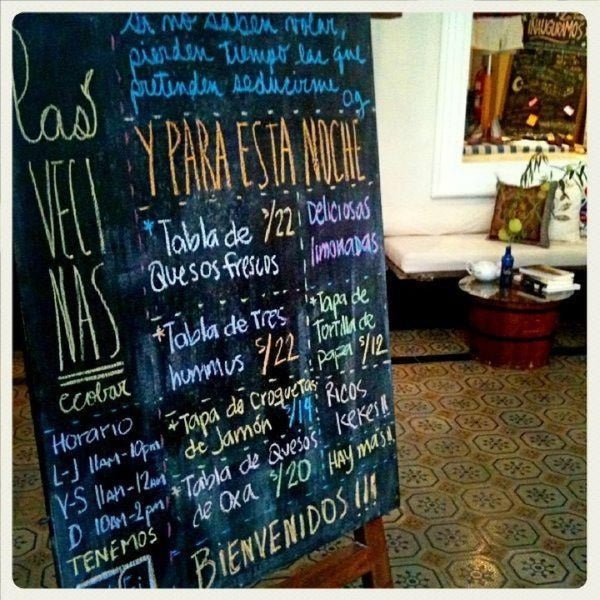 si no saben volar,
pierden tiempo las que
pretenden seducirme
og
Las
VECI
NAS
ecobar
Horario
L-J 11am-10pm
V-S 11am-12am
D 10am-2pm
TENEMOS
Y PARA ESTA NOCHE
*Tabla de S/22
Quesos frescos
Deliciosas
limonadas
*Tabla de tres
hummus S/22
*Tapa de
Tortilla de
papa S/12
*Tapa de Croquetas
de Jamón S/14
Ricos
Kekes!!
*Tabla de Quesos
de Oxa S/20
Hay mas!!
BIENVENIDOS!!!
INAUGURAMOS